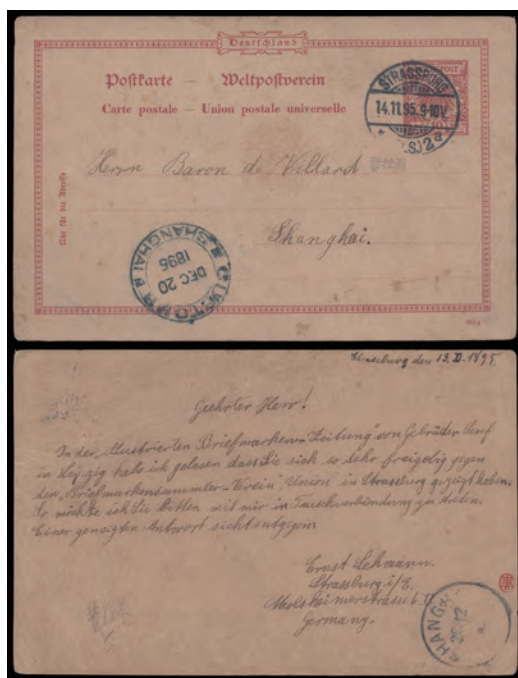 Deutschland
Postkarte — Weltpostverein
Carte postale — Union postale universelle
STRASSBURG
14.11.95.9-10V.
(ELS)2a
Herrn Baron de Villard
Shanghai.
Nur für die Adresse
CUSTOMS
DEC 20
1895
SHANGHAI
Strassburg den 13. XI. 1895.
Geehrter Herr!
In der „Illustrierten Briefmarken-Zeitung" von Gebrüder Senf
in Leipzig habe ich gelesen dass Sie sich so sehr freigebig gegen
den „Briefmarkensammler-Verein", Union in Strassburg gezeigt haben.
So möchte ich Sie bitten mit mir in Tauschverbindung zu treten.
Einer geneigten Antwort sieht entgegen
Ernst Lehmann.
Strassburg i/E.
Molsheimerstrasse
Germany.
SHANGHAI
20 12